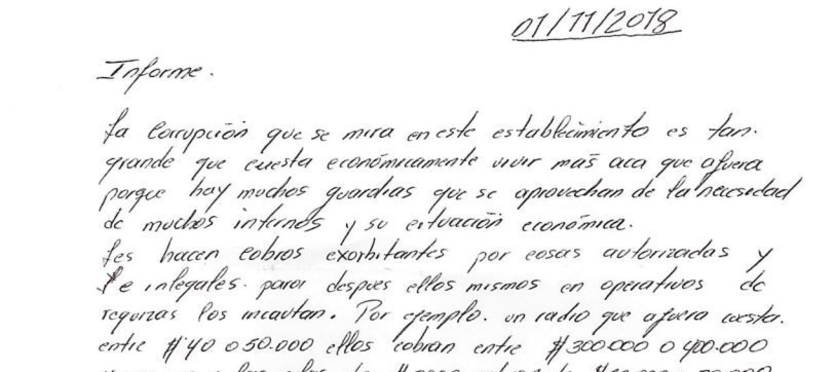 01/11/2018
Informe.
La Corrupción que se mira en este establecimiento es tan.
grande que cuesta económicamente vivir mas aca que afuera
porque hay muchos guardias que se aprovechan de la necesidad
de muchos internos y su cituación económica.
Les hacen cobros exorbitantes por cosas autorizadas y
e inlegales. para despues ellos mismos en operativos de
requizas los incautan. Por ejemplo. un radio que afuera cuesta.
entre $40 o 50.000 ellos cobran entre $300.000 o 400.000